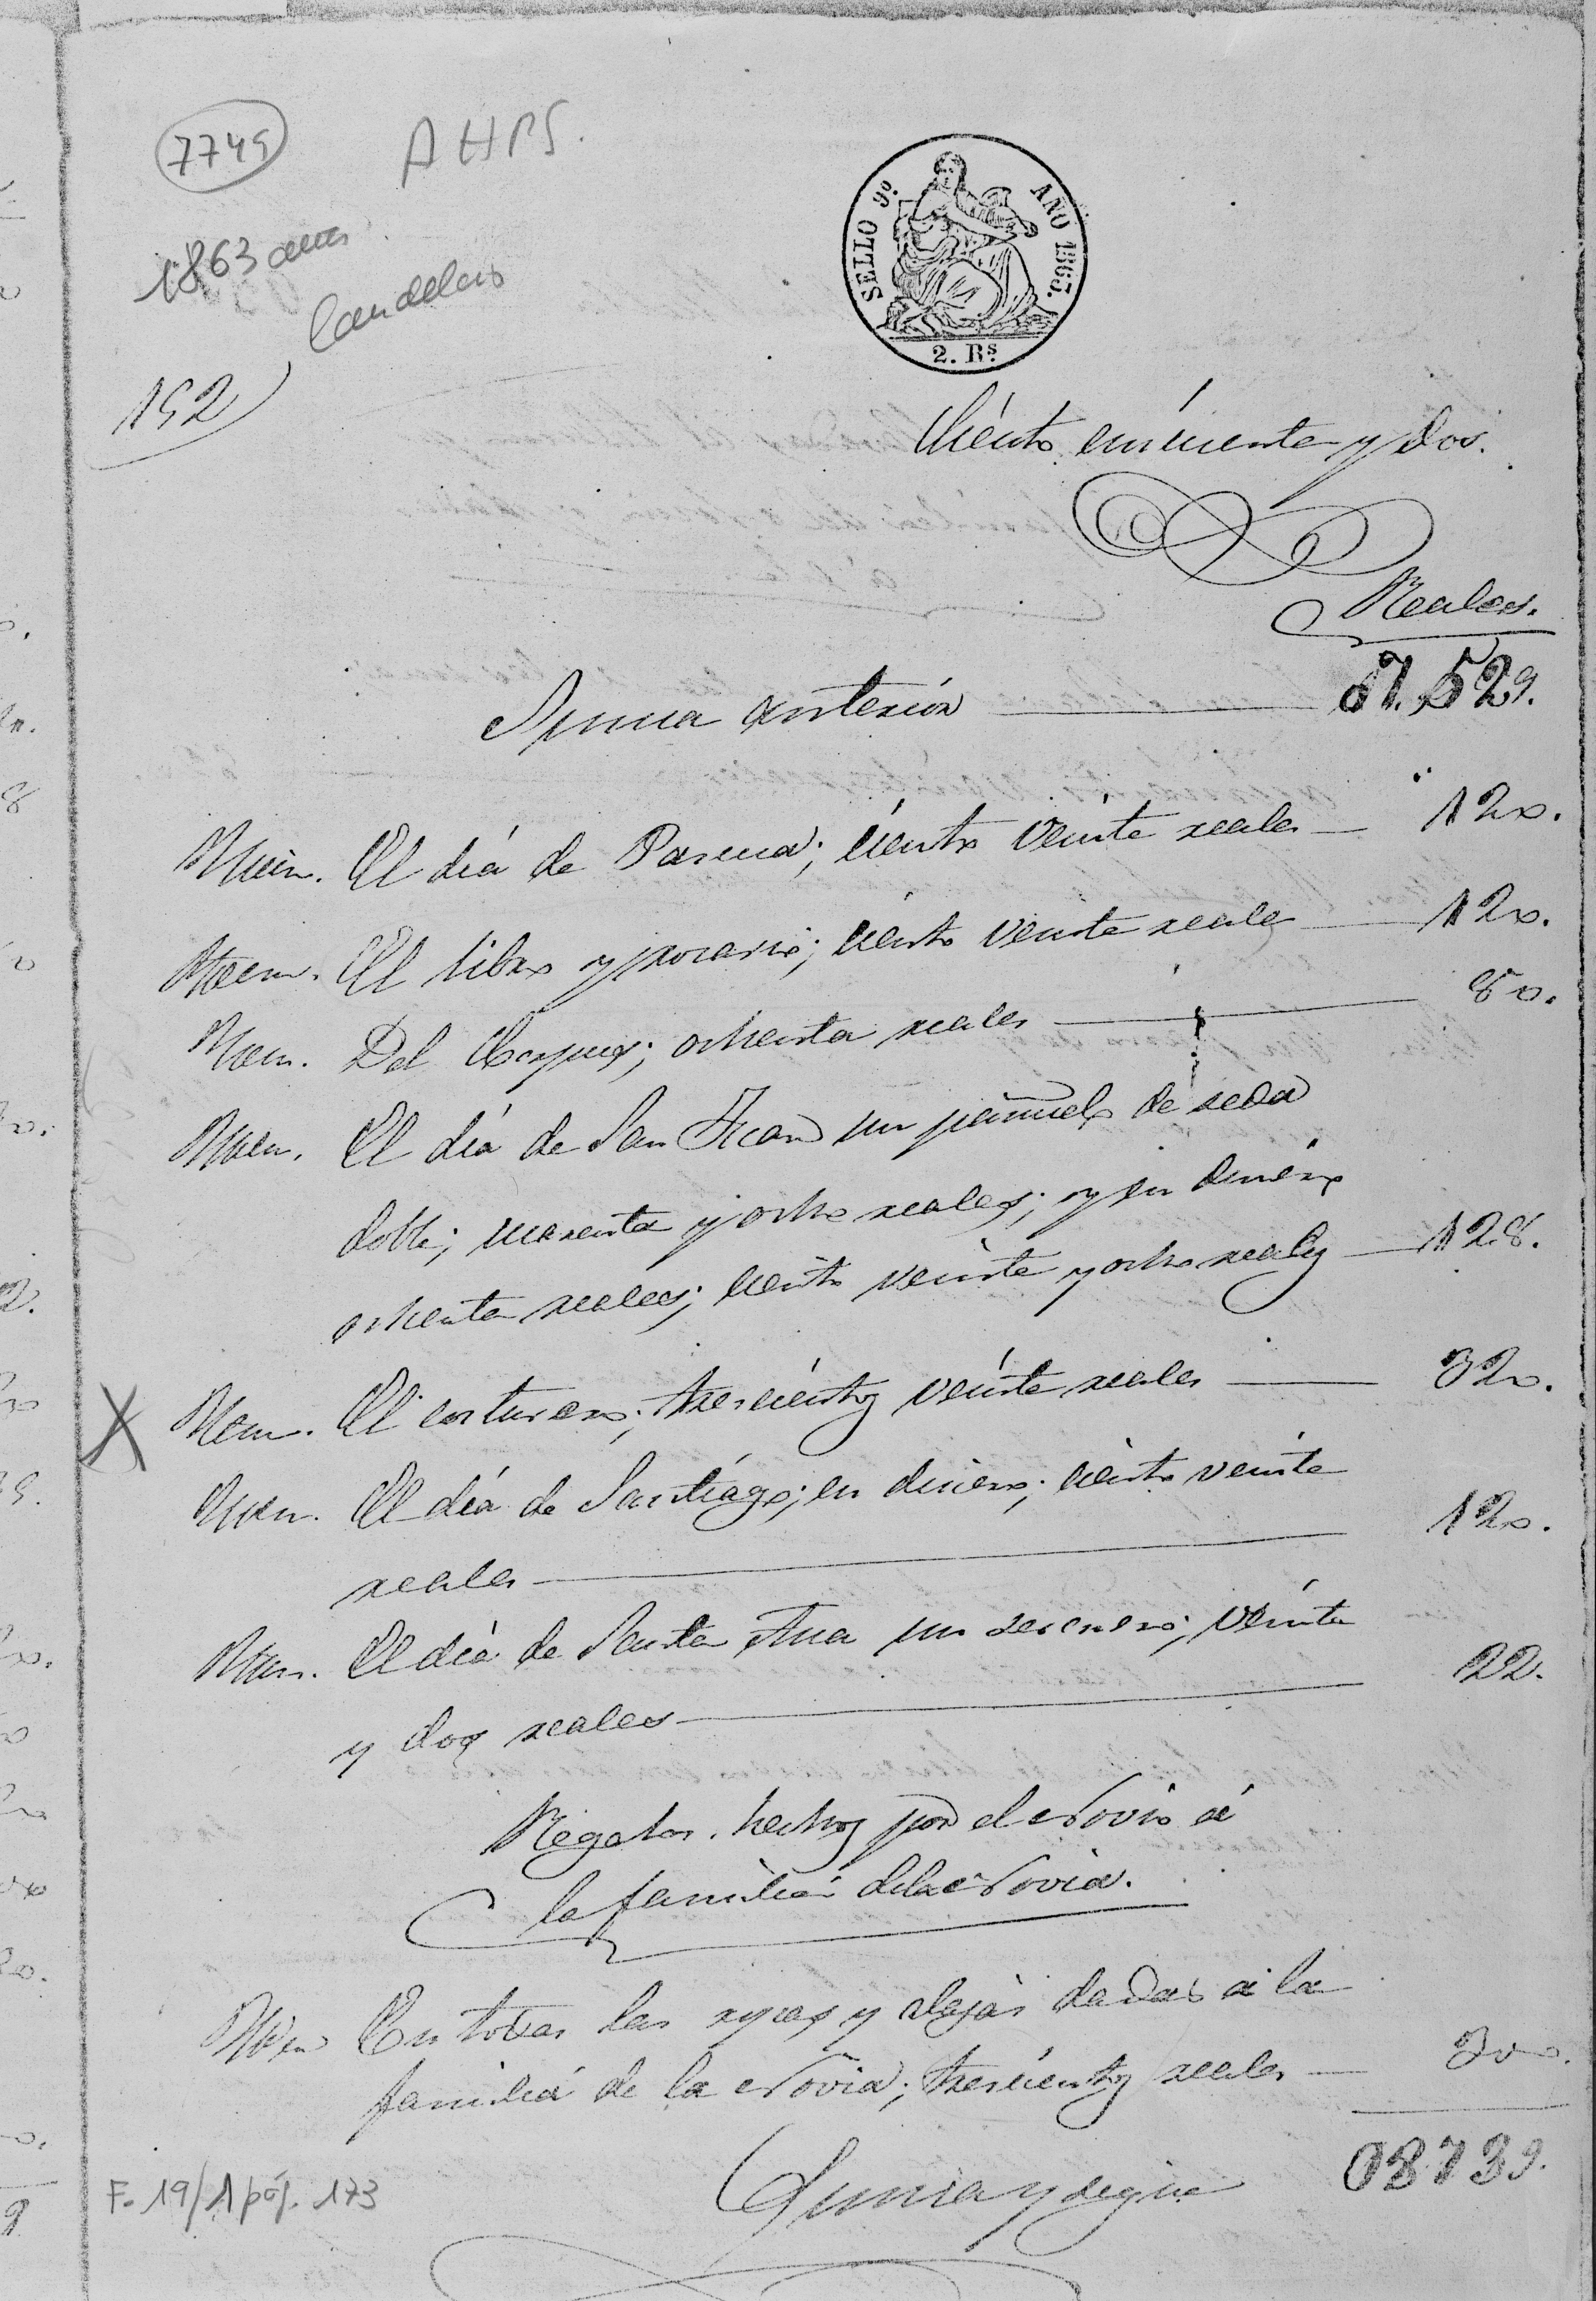 7745
AHPS.
1863
Candelario
152
SELLO 9º. AÑO 1863.
2. Rs.
Ciento cincuenta y dos.
Reales.
Suma anterior 7.529.
Ytem. El día de Pascua; ciento veinte reales 120.
Ytem. El libro y rosario; ciento veinte reales 120.
Ytem. Del Corpus; ochenta reales 80.
Ytem. El día de San Juan un pañuelo de seda
doble; cuarenta y ocho reales; y en dinero
ochenta reales; ciento veinte y ocho reales 128.
X Ytem. El costurero; trescientos veinte reales 320.
Ytem. El día de Santiágo; en dinero; ciento veinte
reales 120.
Ytem. El día de Santa Ana un; veinte
y dos reales 22.
Regalos hechos por el Novio á
la familia de la Novia.
Ytem En todas las ropas y alajas dadas a la
familia de la Novia; trescientos reales 300.
Suma y sigue 08739.
F. 19/1 pág. 173